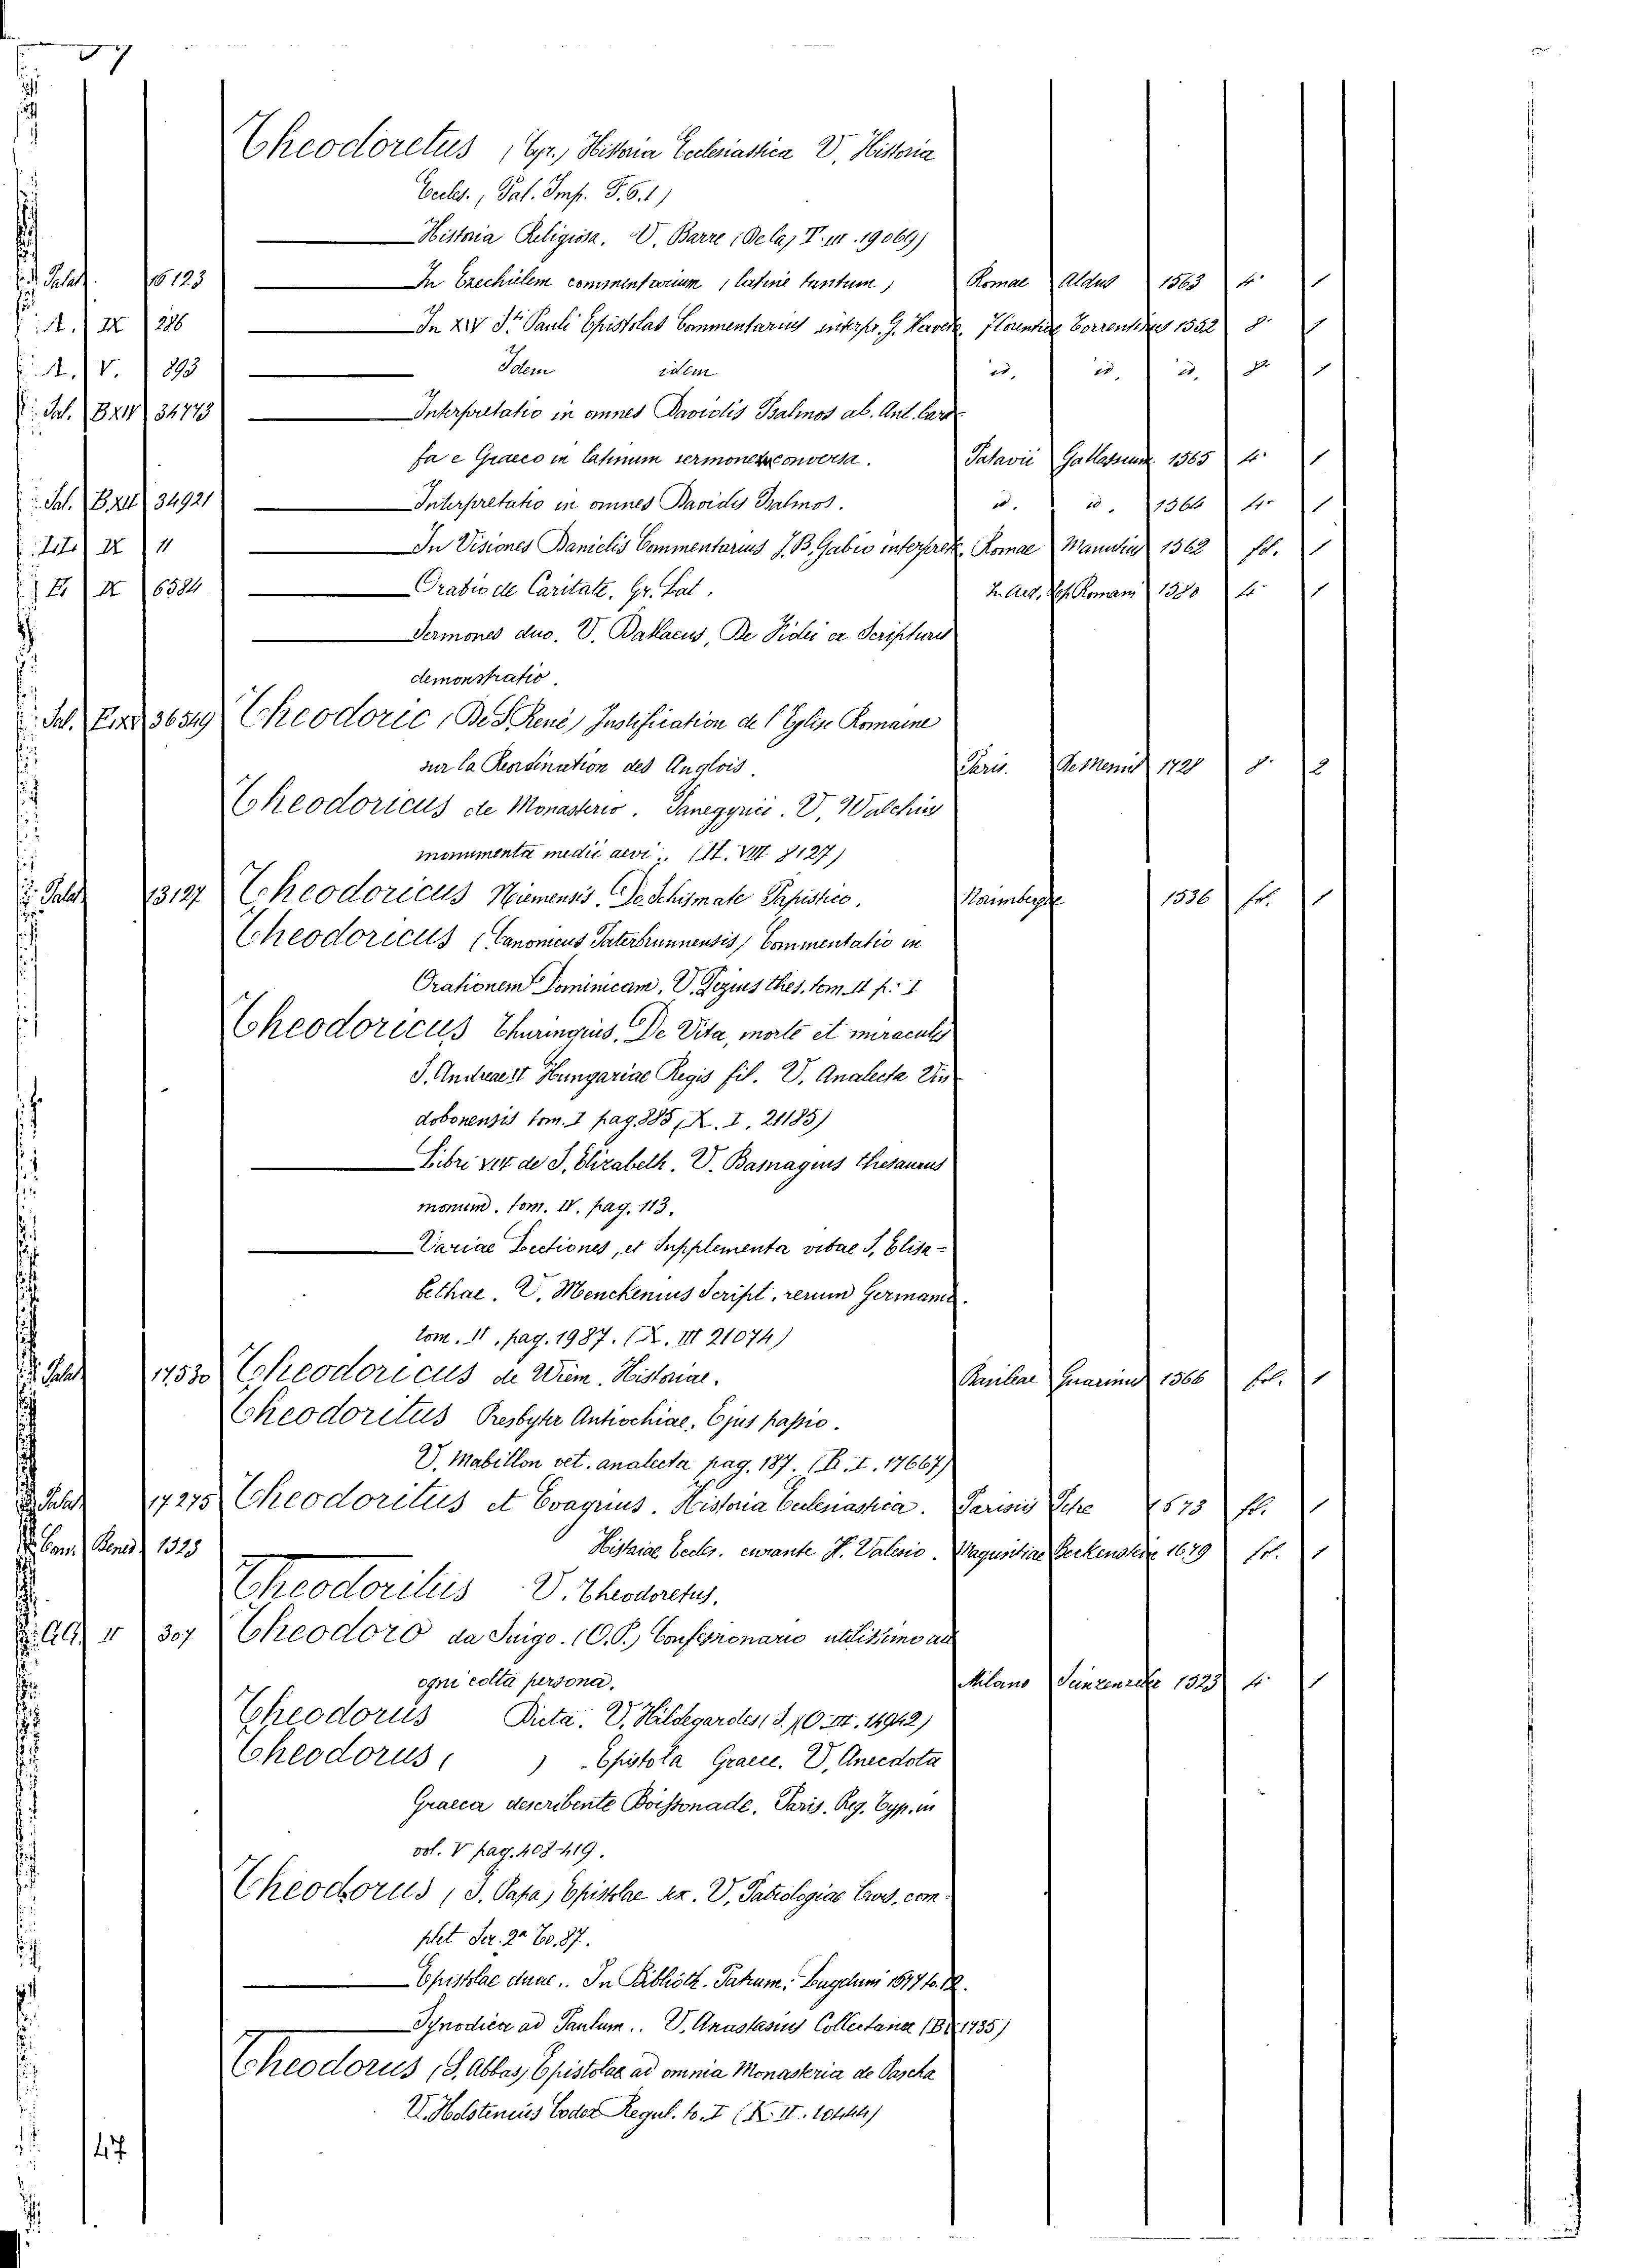 Theodoretus (Cyr.) Historia Ecclesiastica V. Historia
Eccles., Pal. Imp. F. 6. 1)
Historia Religiosa. V. Barre (De la) T. III. 19069)
Palat. 16123 In Ezechielem commentarium (latine tantum) Romae Aldus 1563 4. 1
A. IX 286 In XIV Sti. Pauli Epistolas Commentarius interpr. G. Hervete Florentiae Torrentinus 1552 8. 1
A. V. 893 Idem idem id. id. id. 8. 1
Sal. 34773 Interpretatio in omnes Davidis Psalmos ab. Ant. Cara
fa e Graeco in latinum sermonem conversa. Patavii 1565 4. 1
Sal. 34921 Interpretatio in omnes Davidis Psalmos. id. id. 1566 4. 1
IX 11 In Visiones Danielis Commentarius J. B. Gabio interpret. Romae Manutius 1562 fol. 1
IX 6584 Oratio de Caritate. Gr. Lat. Romani 1580 4. 1
Sermones duo. V. Ballaeus, De Fidei ex Scripturis
demonstratio.
Sal. 36549 Theodoric (De S. René) Justification de l'Eglise Romaine
sur la Reordination des Anglois. Paris. De Mesnil 1728 8. 2
Theodoricus de Monasterio. Panegyrici. V. Walchius
monumenta medii aevi. (M. VII. 8127)
Palat. 13127 Theodoricus Niemensis. De Schismate Papistico. Norimbergae 1536 fol. 1
Theodoricus (Canonicus Paterbrunnensis) Commentatio in
Orationem Dominicam, V. Pezius thes. tom. II p. I
Theodoricus Thuringius. De Vita, morte et miraculis
S. Andreae II Hungariae Regis fil. V. Analecta Vin
dobonensis tom. I pag. 885 (X. I. 21185)
Libri VIII de S. Elizabeth. V. Basnagius thesaurus
monum. tom. IV. pag. 113.
Variae Lectiones, et Supplementa vitae S. Elisa=
bethae. V. Menckenius Script. rerum Germanic.
tom. II. pag. 1987. (X. III 21074)
Palat. 17530 Theodoricus de Niem. Historiae. Basileae Guarinus 1566 fol. 1
Theodoritus Presbyter Antiochiae. Ejus passio.
V. Mabillon vet. analecta pag. 187. (B. I. 17667)
Palat. 17275 Theodoritus et Evagrius. Historia Ecclesiastica. Parisiis 1673 fol. 1
Bened. 1323 Historiae Eccles. curante H. Valesio. Maguntiae 1679 fol. 1
Theodoritus V. Theodoretus.
II 307 Theodoro da Inigo. (O.P.) Confessionario utilissimo ad
ogni colta persona. Milano 1523 4. 1
Theodorus Dicta. V. Hildegardes, S. (O. III. 14942)
Theodorus ( ) Epistola Graece. V. Anecdota
Graeca describente Boissonade. Paris. Reg. Typ. in
vol. V pag. 408-419.
Theodorus (S. Papa) Epistolae sex. V. Patrologiae Curs. com
plet Ser. 2a To. 87.
Epistolae duae.. In Biblioth. Patrum. Lugduni 1677 to. 12.
Synodica ad Paulum.. V. Anastasius Collectanea (B. 1735)
Theodorus (S. Abbas) Epistolae ad omnia Monasteria de Pascha
V. Holstenius Codex Regul. to. I (K. II. 10444)
47